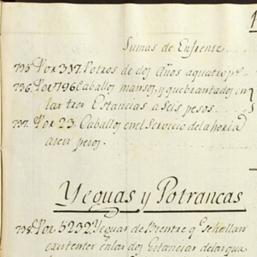 1
Sumas de Enfrente
735. Por 337. Potros de dos Años aquatro p.s
736. Por 796 Caballos mansos, y quebrantados, en
las tres Estancias a seis pesos
737. Por 23. Caballos en el Servicio de la
a seis pesos.
Yeguas y Potrancas
738. Por 5232 Yeguas de Bientre q.e se hallan
existentes en las dos Estancias de